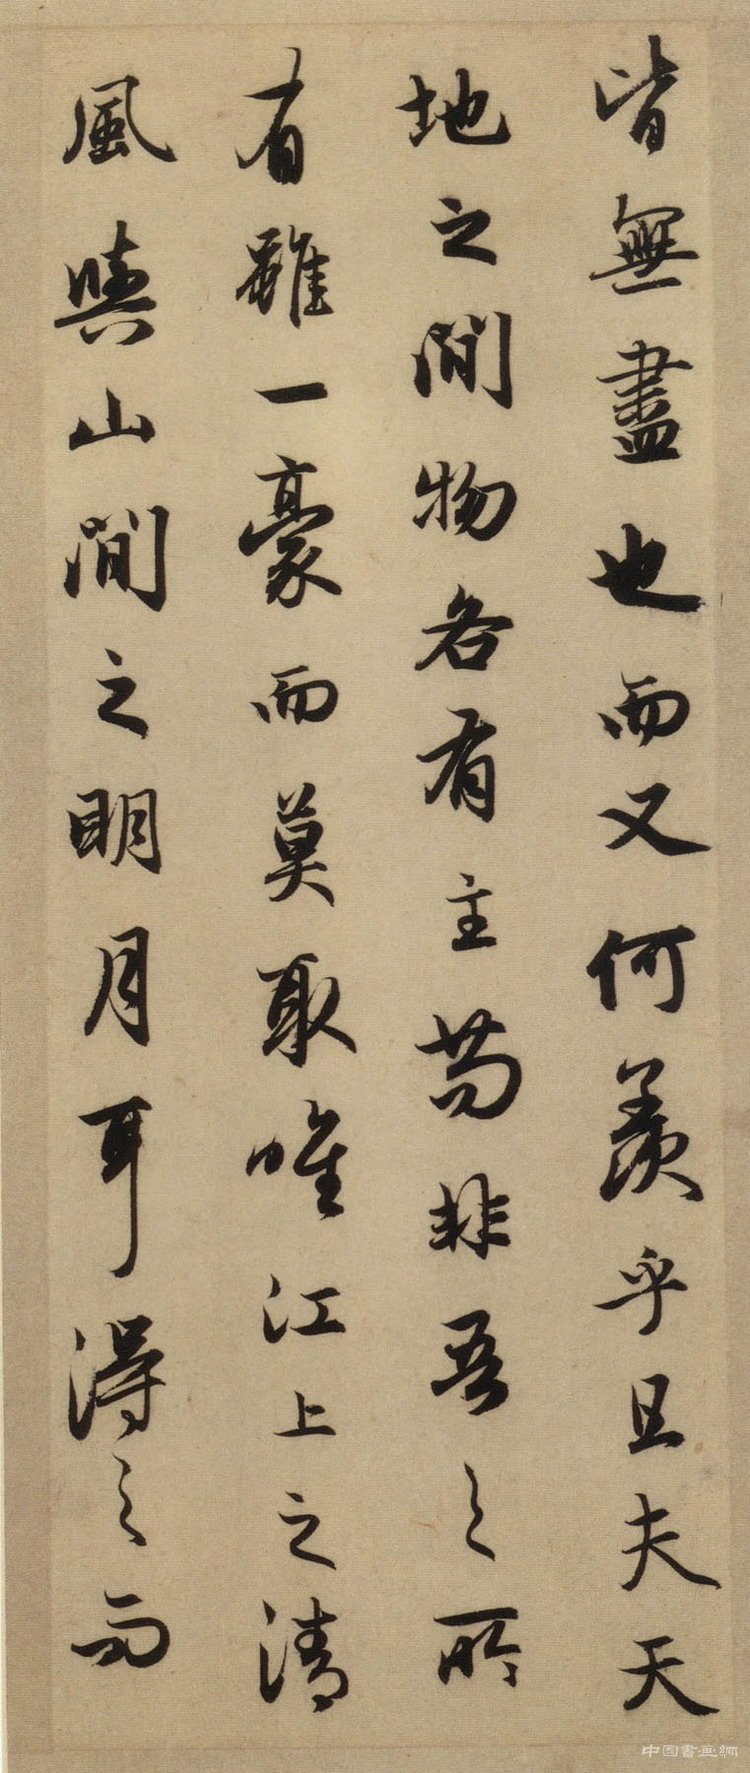 皆無盡也而又何羨乎且夫天
地之間物各有主苟非吾之所
有雖一豪而莫取唯江上之清
風與山間之明月耳得之而
中国書画網